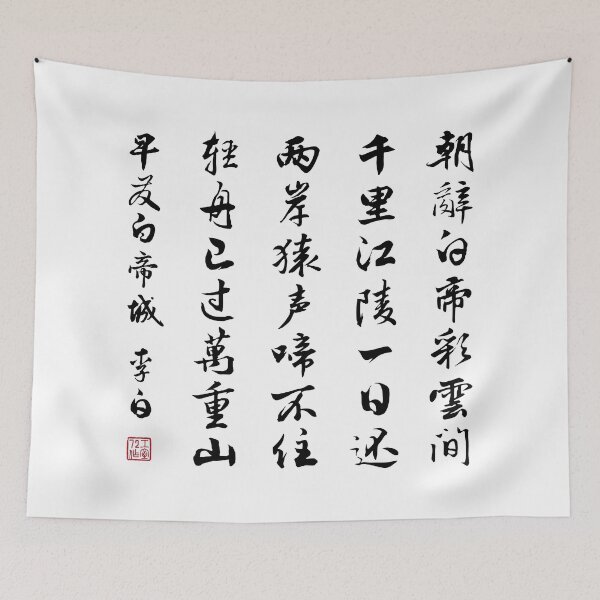 朝辭白帝彩雲間
千里江陵一日还
两岸猿声啼不住
轻舟已过萬重山
早发白帝城 李白